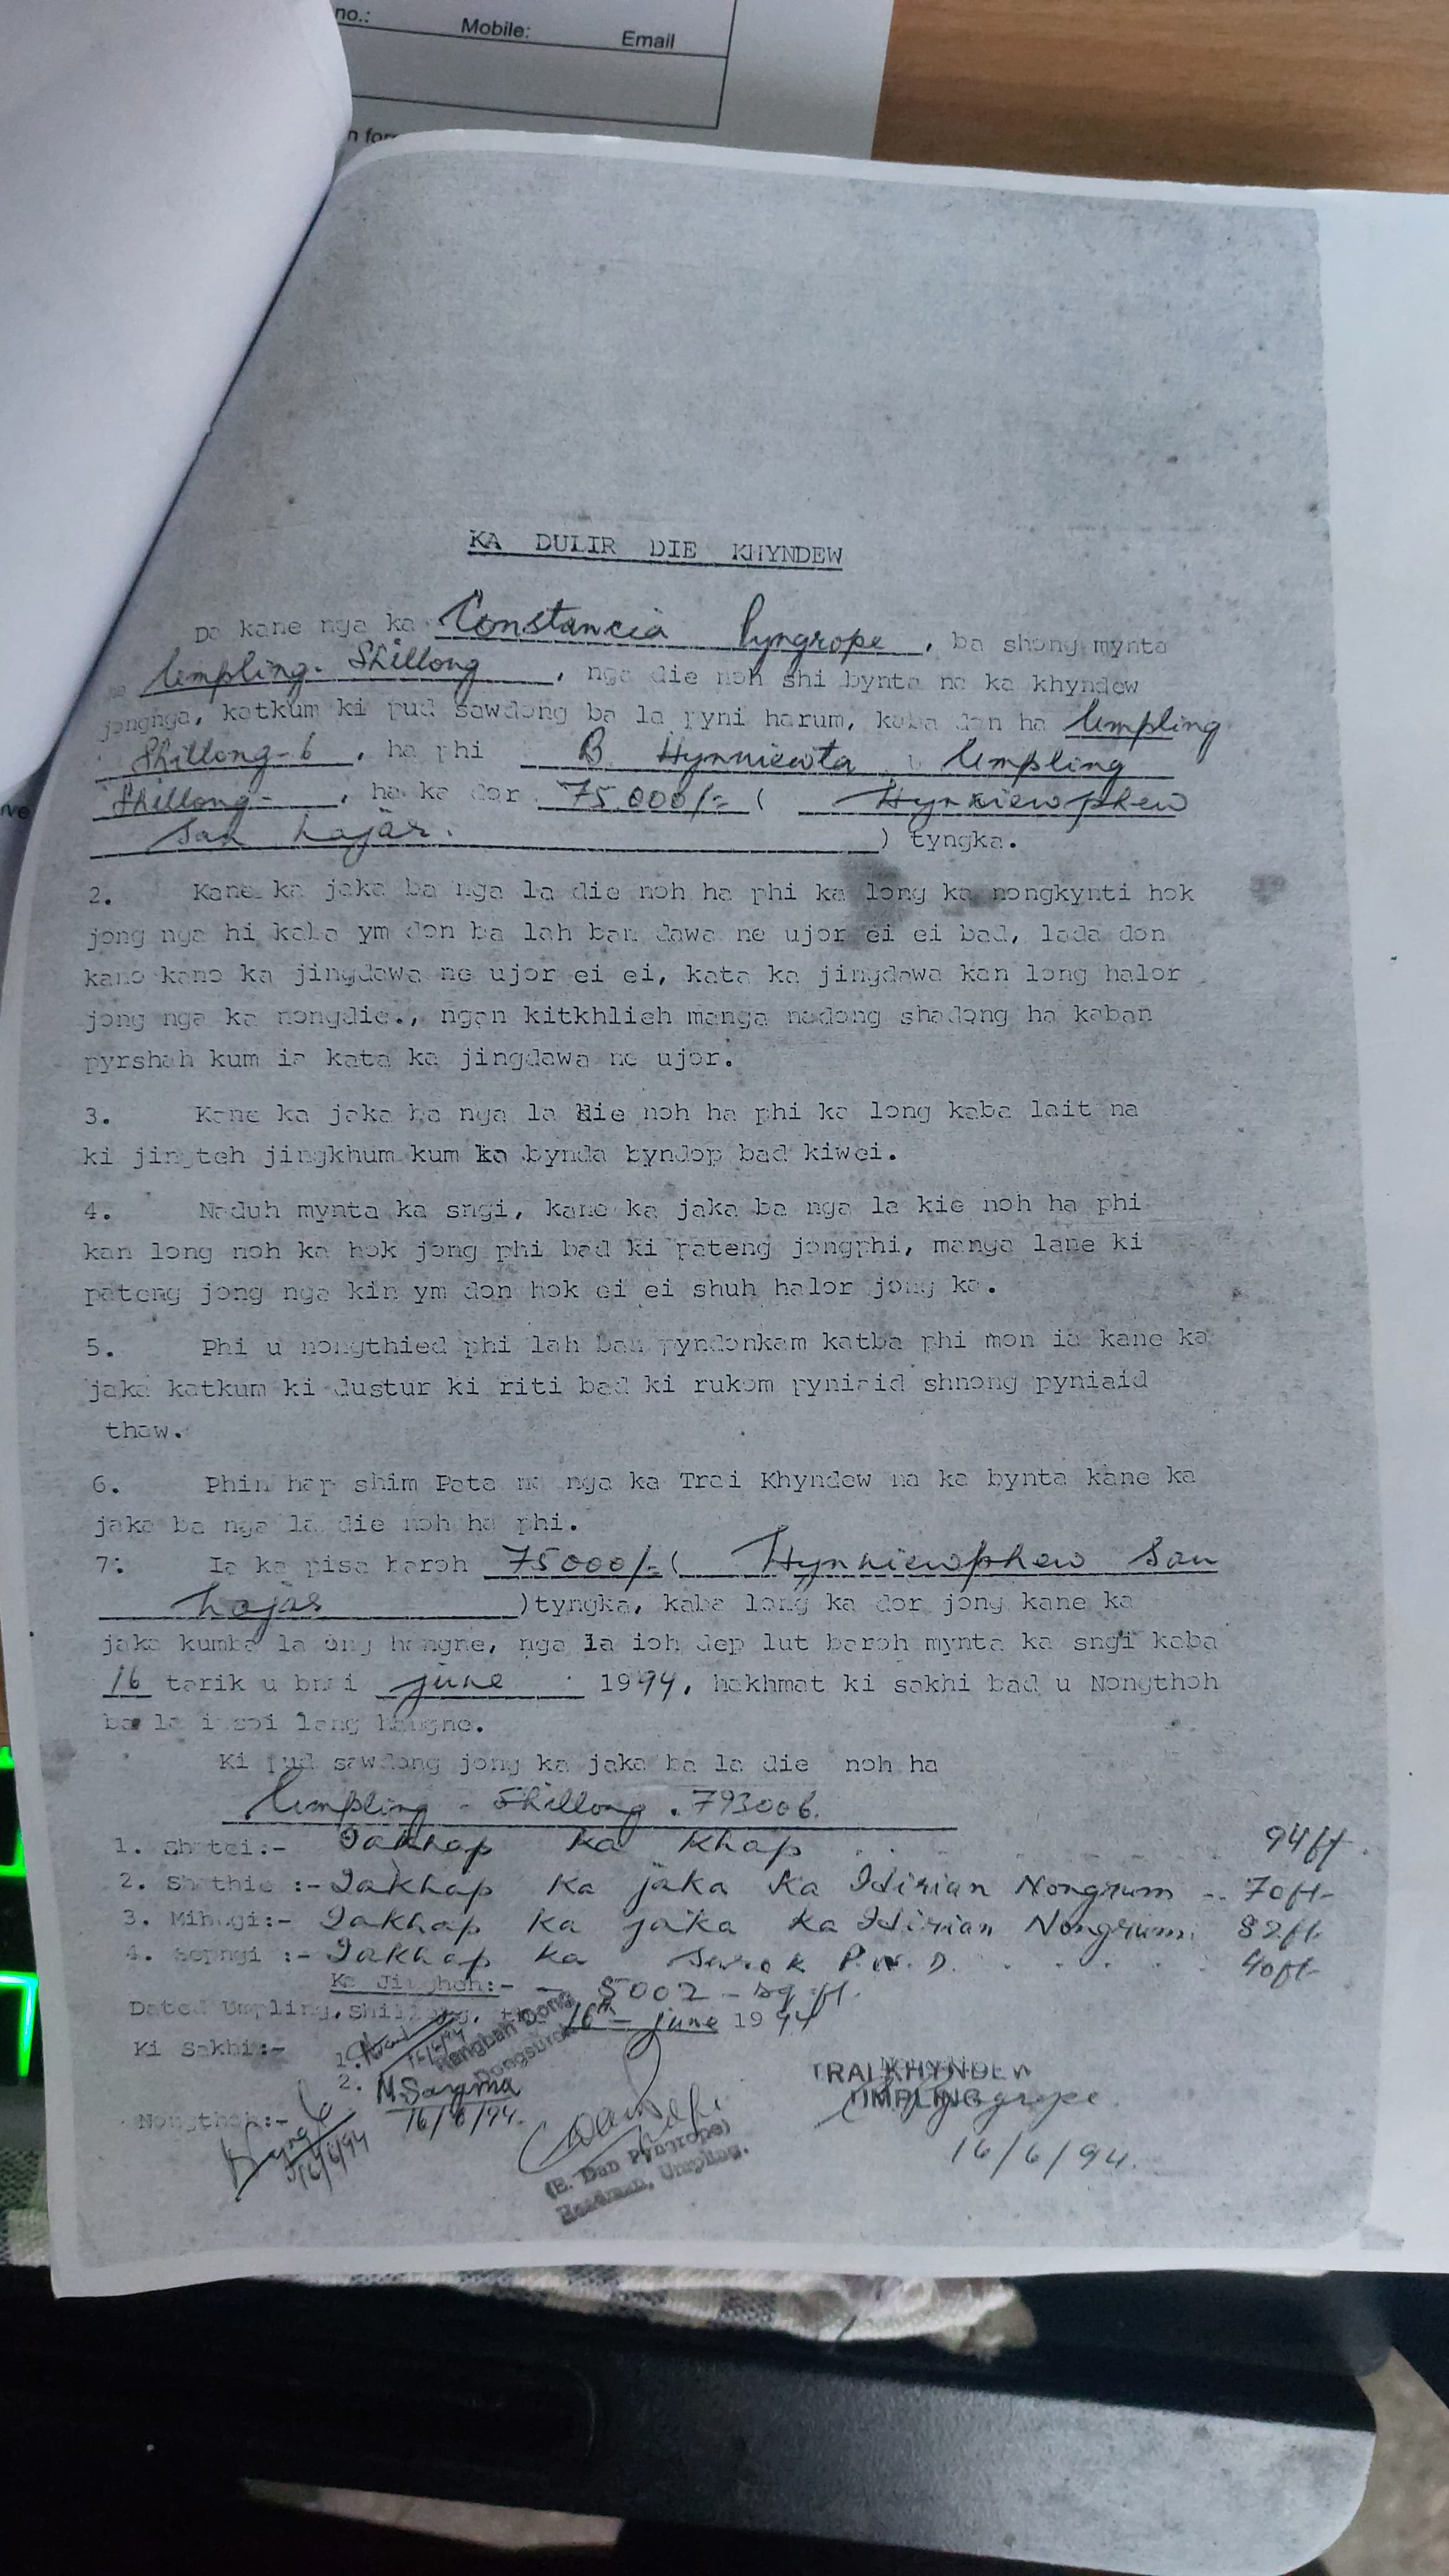 no.:
Mobile:
Email
KA DULIR DIE KHYNDEW
Da kane nga ka Constancia Pyngrope, ba shong mynta
Umpling. Shillong, nga die noh shi bynta na ka khyndew
jongnga, katkum ki pud sawdong ba la pyni harum, kaba don ha Umpling
Shillong-6, ha phi B. Hynniewta Umpling
Shillong-, ha ka dor 75.000/= ( Hynniewphew
San hajar. ) tyngka.
2. Kane ka jaka ba nga la die noh ha phi ka long ka nongkynti hok
jong nga hi kaba ym don ba lah ban dawa ne ujor ei ei bad, lada don
kano kano ka jingdawa ne ujor ei ei, kata ka jingdawa kan long halor
jong nga ka nongdie., ngan kitkhlieh manga nadong shadong ha kaban
pyrshah kum ia kata ka jingdawa ne ujor.
3. Kane ka jaka ba nga la die noh ha phi ka long kaba lait na
ki jingteh jingkhum kum ka bynda byndop bad kiwei.
4. Naduh mynta ka sngi, kane ka jaka ba nga la kie noh ha phi
kan long noh ka hok jong phi bad ki pateng jongphi, manga lane ki
pateng jong nga kin ym don hok ei ei shuh halor jong ka.
5. Phi u nongthied phi lah ban pyndonkam katba phi mon ia kane ka
jaka katkum ki dustur ki riti bad ki rukom pyniaid shnong pyniaid
thaw.
6. Phin hap shim Pata na nga ka Trai Khyndew na ka bynta kane ka
jaka ba nga la die noh ha phi.
7. Ia ka pisa baroh 75000/- ( Hynniewphew San
hajar )tyngka, kaba long ka dor jong kane ka
jaka kumba la ong hangne, nga la ioh dep lut baroh mynta ka sngi kaba
16 tarik u bnai june 1994, hakhmat ki sakhi bad u Nongthoh
ba la isoi lang hangne.
Ki pud sawdong jong ka jaka ba la die noh ha
Umpling - Shillong. 793006.
1. Shatei:- Iakhap ka khap 94ft.
2. Shathie :- Iakhap ka jaka ka Idirian Nongrum -- 70ft-
3. Mihngi:- Iakhap ka jaka ka Idirian Nongrum. 82ft.
4. Sepngi :- Iakhap ka surok P.W.D. 40ft-
Ka Jingheh:- - 5002 - sq.ft.
Dated Umpling, Shillong, 16th - june 1994
Ki Sakhi:- 1. 16/6/94
Rangbah Dong
Dongsurok
2. M. Sangma
16/6/94.
Nongthoh:-
16/6/94
(E. Dan Pyngrope)
Headman, Umpling.
TRAI KHYNDEW
UMPLING
Pyngrope.
16/6/94.